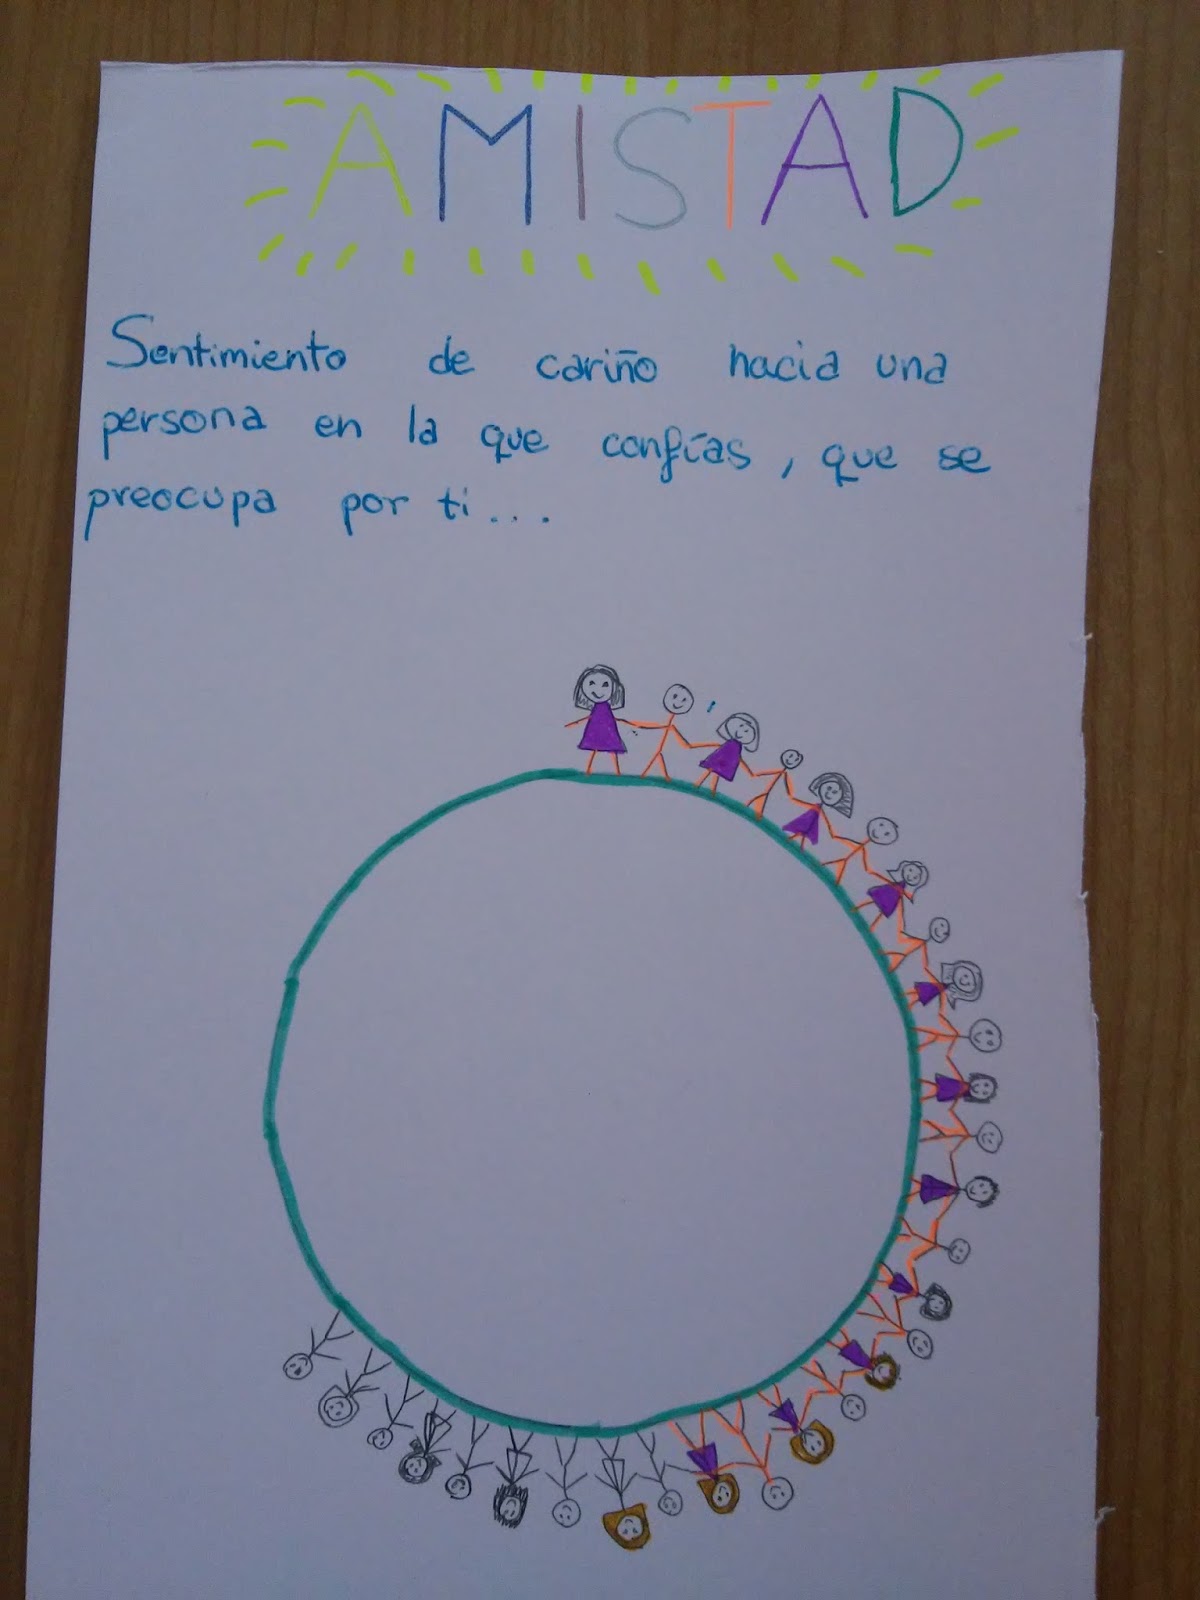 AMISTAD
Sentimiento de cariño hacia una
persona en la que confías, que se
preocupa por ti...